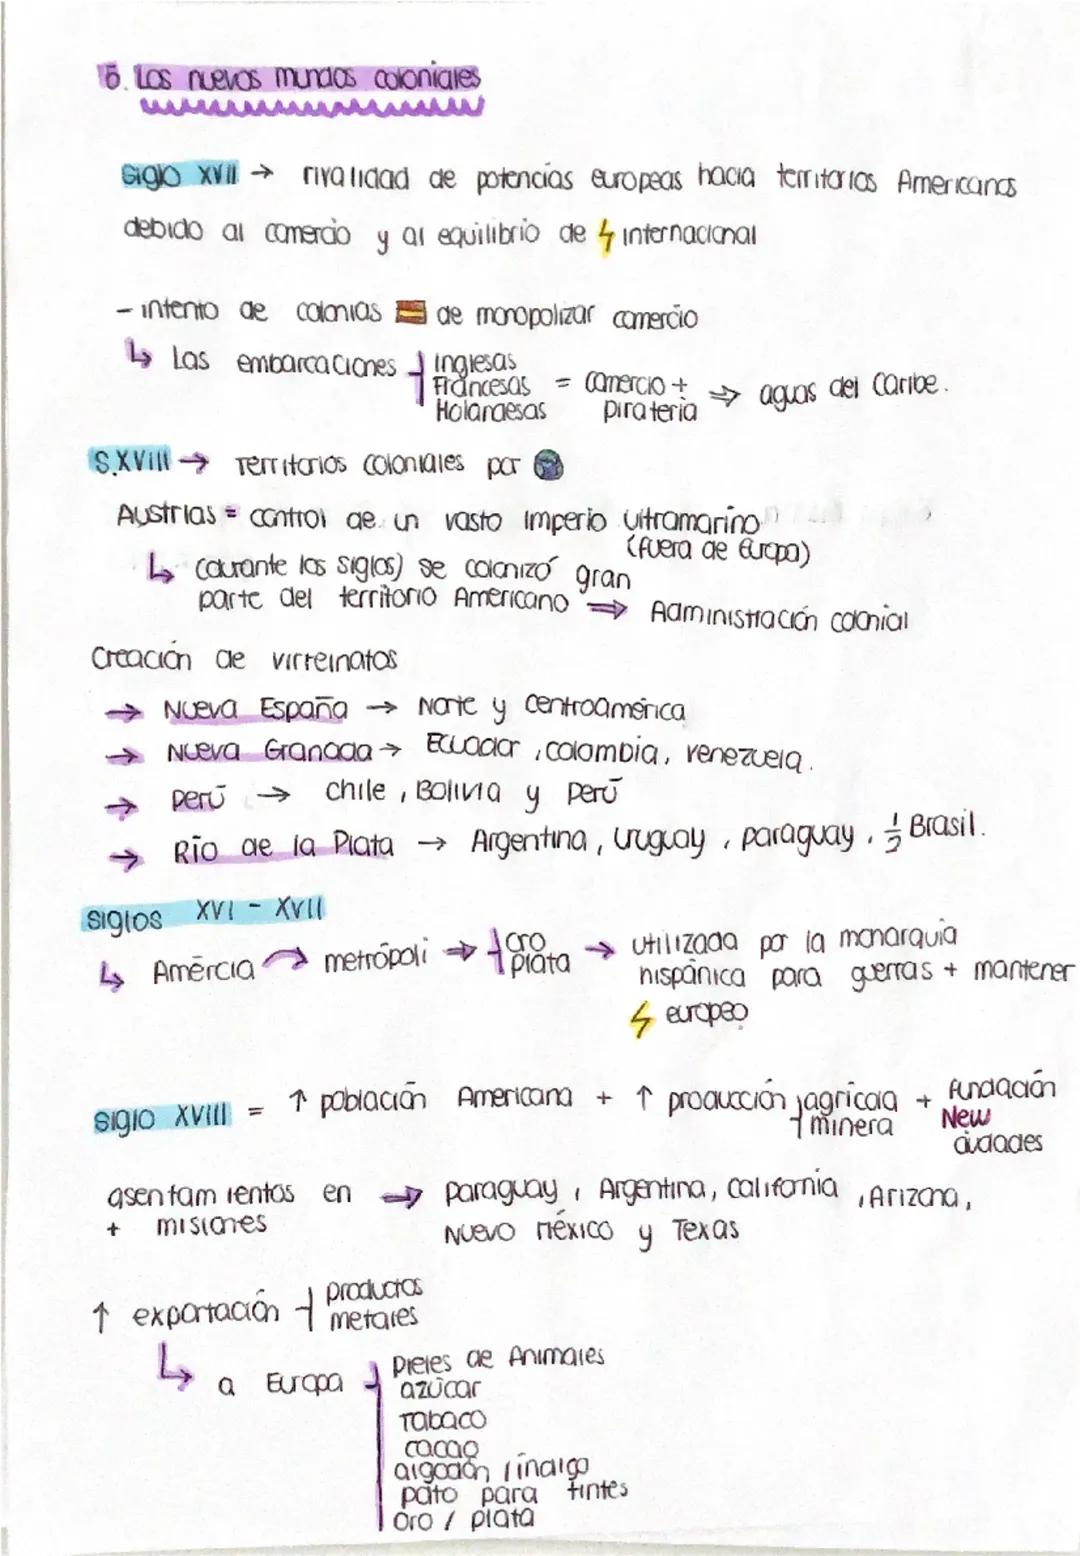 5. Los nuevos mundos coloniales
Siglo XVII → rivalidad de potencias europeas hacia territorios Americanos
debido al comercio y al equilibrio de ⚡ internacional
- intento de colonias 🇪🇸 de monopolizar comercio
↳ Las embarcaciones { inglesas
Francesas = comercio + ⇒ aguas del Caribe.
Holandesas piratería
S.XVIII → Territorios coloniales por 🌍
Austrias = control de un vasto imperio ultramarino
(fuera de Europa)
↳ (durante los siglos) se colonizó gran
parte del territorio Americano ⇒ Administración colonial
Creación de virreinatos
→ Nueva España → Norte y centroamérica
→ Nueva Granada → Ecuador, colombia, venezuela.
→ perú → chile, Bolivia y perú
→ Río de la Plata → Argentina, Uruguay, paraguay, ½ Brasil.
siglos XVI - XVII
↳ Amércia → metrópoli ⇒ { oro → utilizada por la monarquía
plata hispánica para guerras + mantener
⚡ europeo
siglo XVIII = ↑ población Americana + ↑ producción { agrícola + Fundación
minera New
ciudades
asentamientos en ⇒ paraguay, Argentina, california, Arizona,
+ misiones Nuevo méxico y Texas
↑ exportación { productos
metales
↳ a Europa { pieles de Animales
azúcar
Tabaco
cacao
algodón / índigo
pato para tintes
oro / plata